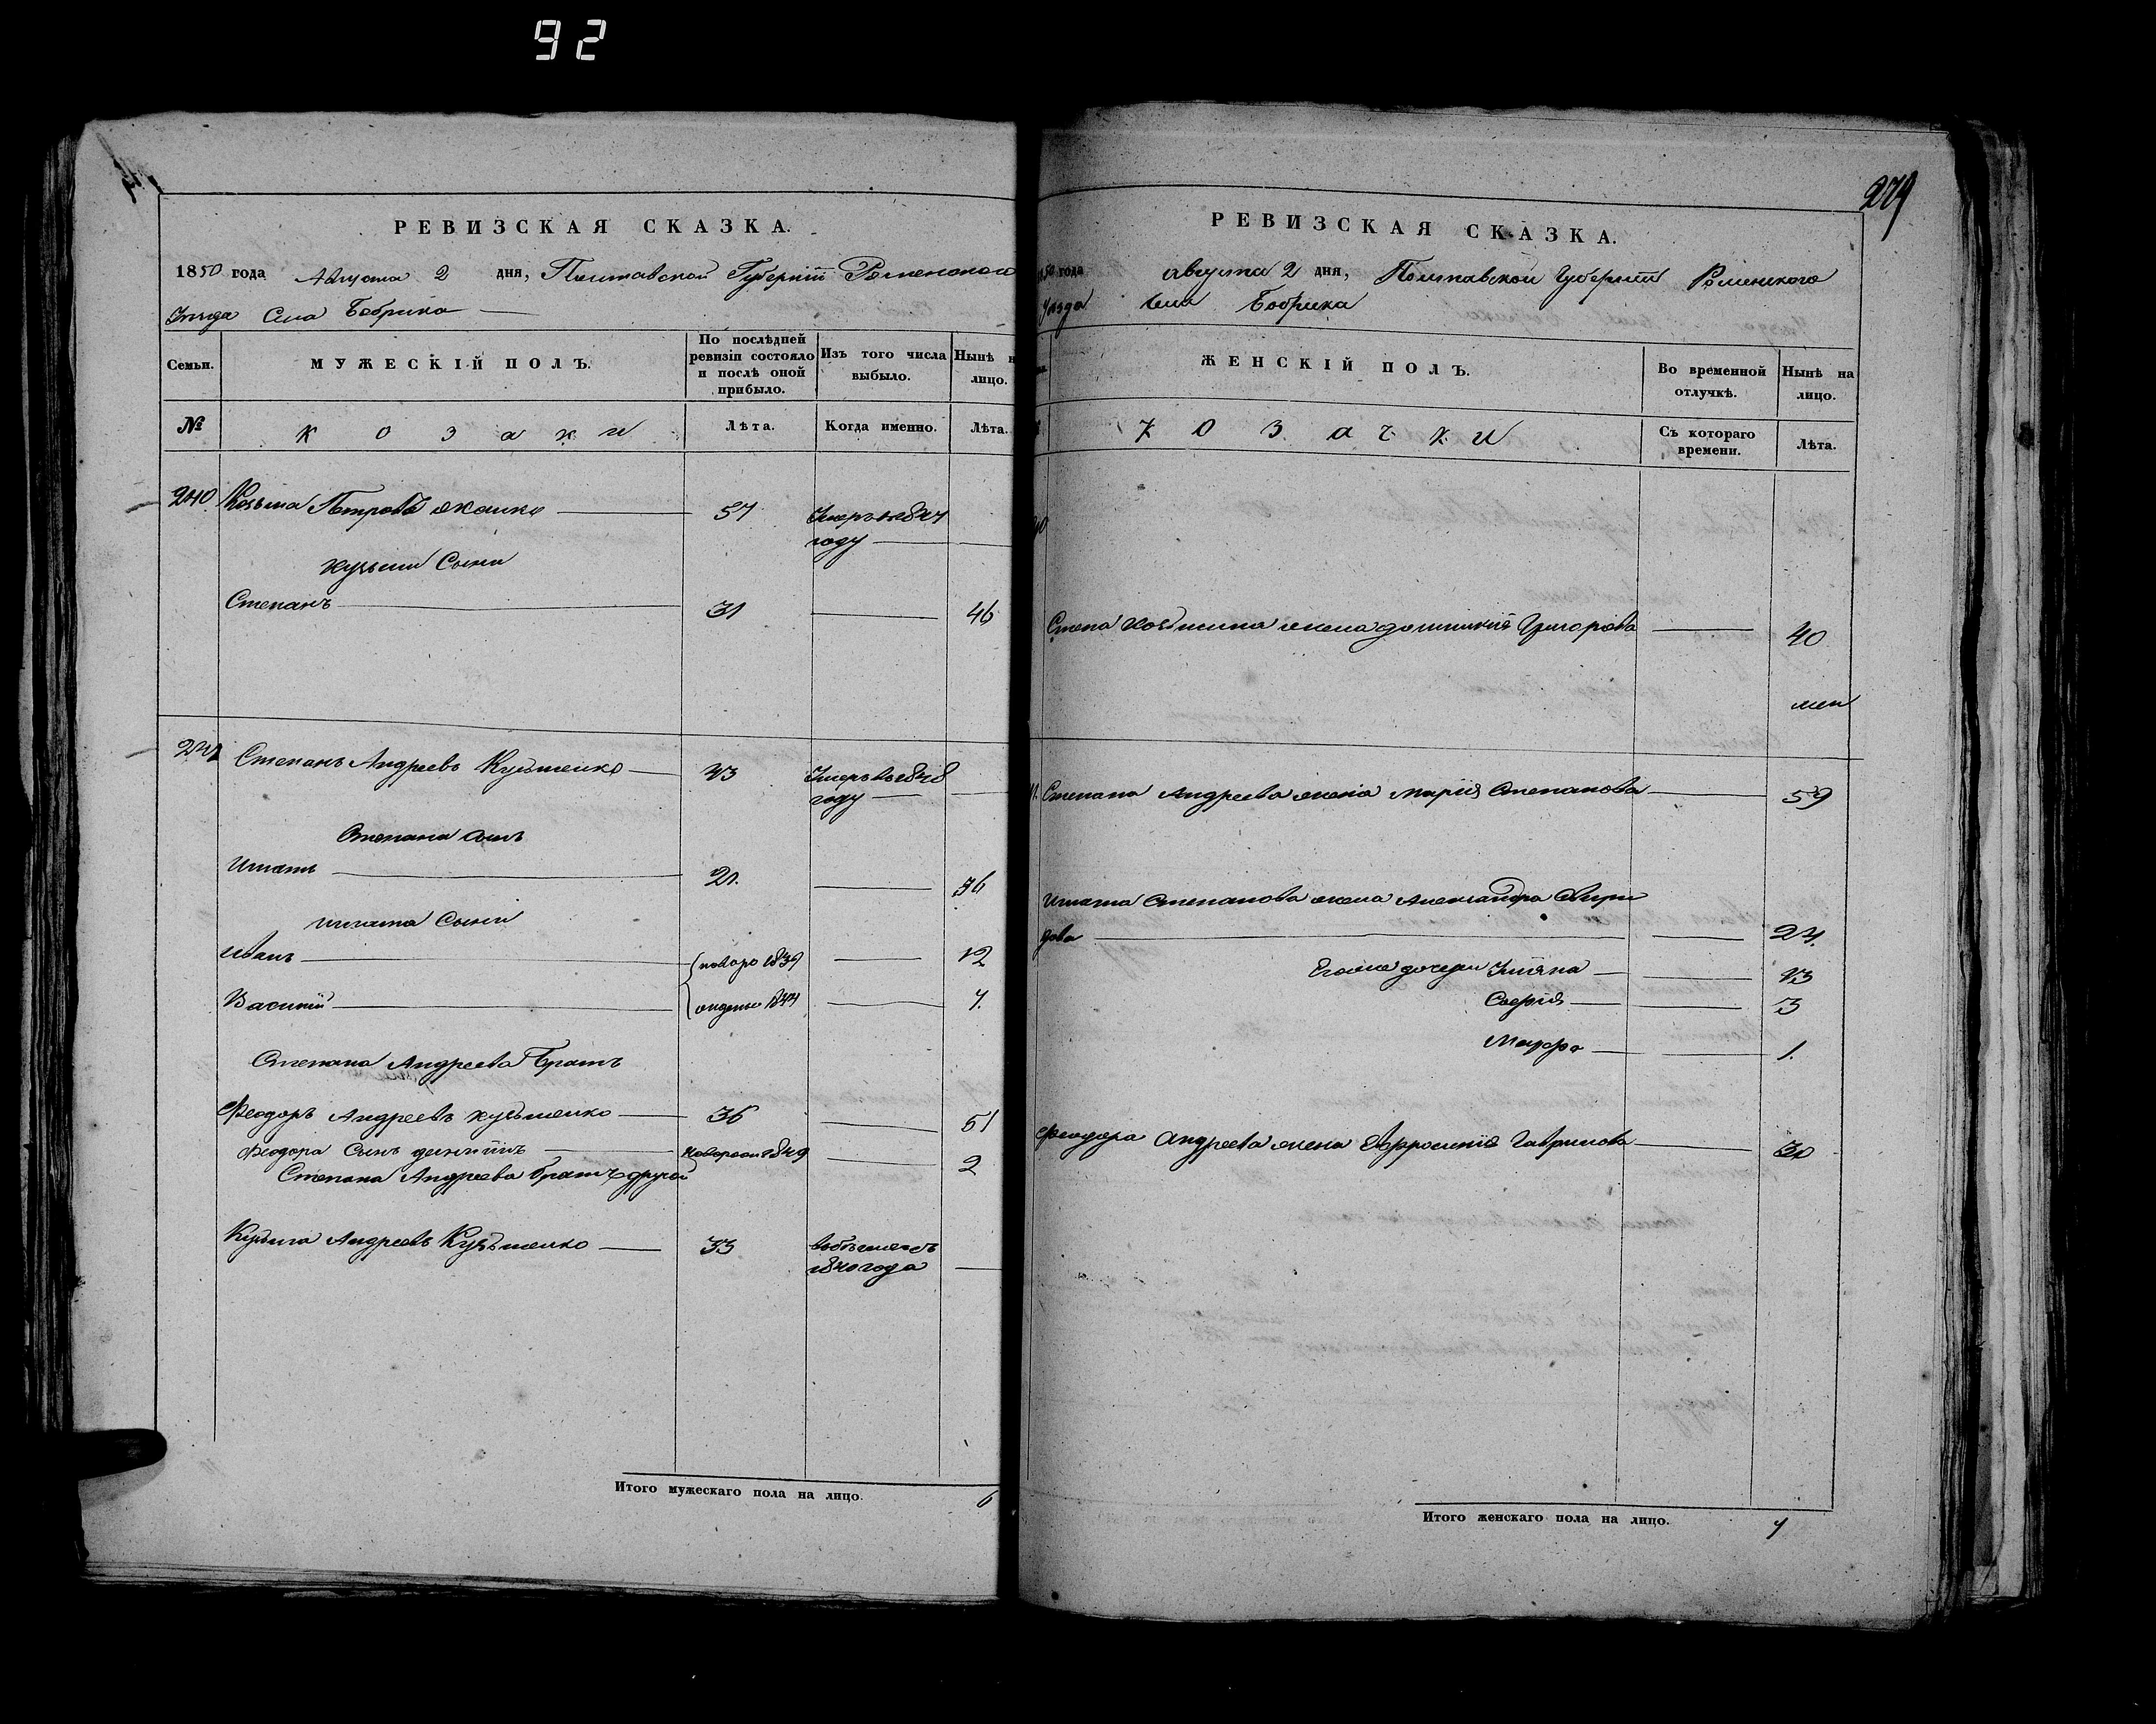 92
РЕВИЗСКАЯ СКАЗКА.
1850 года Августа 2 дня, Полтавской Губерніи Роменского
Уезда Села Бобрика
Семьи.
МУЖЕСКІЙ ПОЛЪ.
По послѣдней ревизіи состояло и послѣ оной прибыло.
Изъ того числа выбыло.
Нынѣ н
лицо.
№
козаки
Лѣта.
Когда именно.
Лѣта.
240. Козьма Петровъ 57 Умеръ в 1847
году
Кузьми Сынъ
Степанъ 31 46
241 Степанъ Андреевъ Кузьменко 43 Умеръ въ 1848
году
Степана сынъ
Игнатъ 21. 36
Игната Сыни
Иванъ новоро 1839 12
Василій жденые 1844 7.
Степана Андреева Братъ
Феодоръ Андреевъ Кузьменко 36 51
Феодора Сынъ 1849 2
Степана Андреева братъ другой
Кузьма Андреевъ Кузьменко 33
1840 года
Итого мужескаго пола на лицо. 6
279
РЕВИЗСКАЯ СКАЗКА.
1850 года Августа 2 дня, Полтавской Губерніи Роменского
Уезда Села Бобрика
ЖЕНСКІЙ ПОЛЪ.
Во временной отлучкѣ.
Нынѣ на лицо.
козачки
Съ котораго времени.
Лѣта.
Степа Козьмина жена Григорова 40
Степана Андреева жена Марія Степанова 59
Игната Степанова жена Александра Свири
дова 24.
Его же дочери Уліяна 13
Софія 3
Марфа 1.
Феодора Андреева жена Евфросинія Гаврилова 30
Итого женскаго пола на лицо. 7